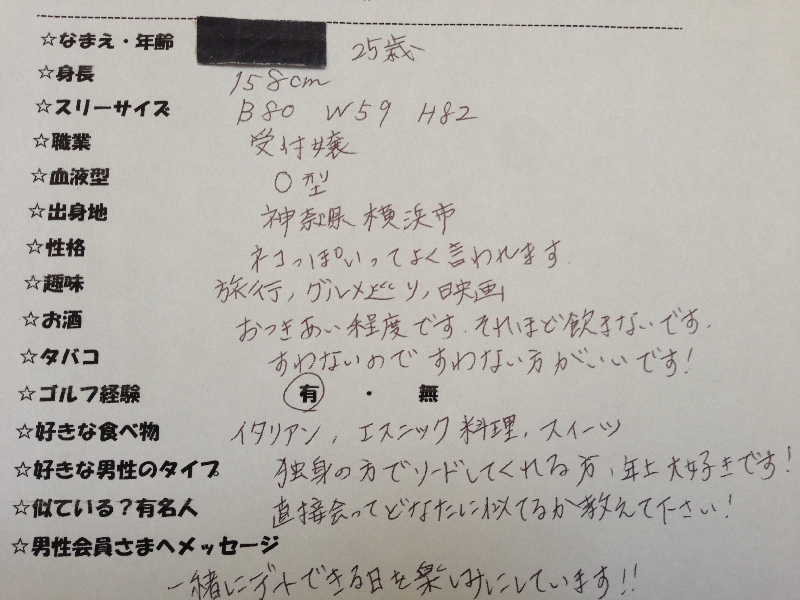 ☆なまえ・年齢 25歳
☆身長 158cm
☆スリーサイズ B80 W59 H82
☆職業 受付嬢
☆血液型 O型
☆出身地 神奈川県 横浜市
☆性格 ネコっぽいってよく言われます.
☆趣味 旅行,グルメめぐり,映画
☆お酒 おつきあい程度です.それほど飲まないです.
☆タバコ すわないので すわない方がいいです!
☆ゴルフ経験 有 ・ 無
☆好きな食べ物 イタリアン,エスニック料理,スイーツ
☆好きな男性のタイプ 独身の方でリードしてくれる方、年上大好きです!
☆似ている?有名人 直接会ってどなたに似てるか教えて下さい!
☆男性会員さまへメッセージ
一緒にデートできる日を楽しみにしています!!